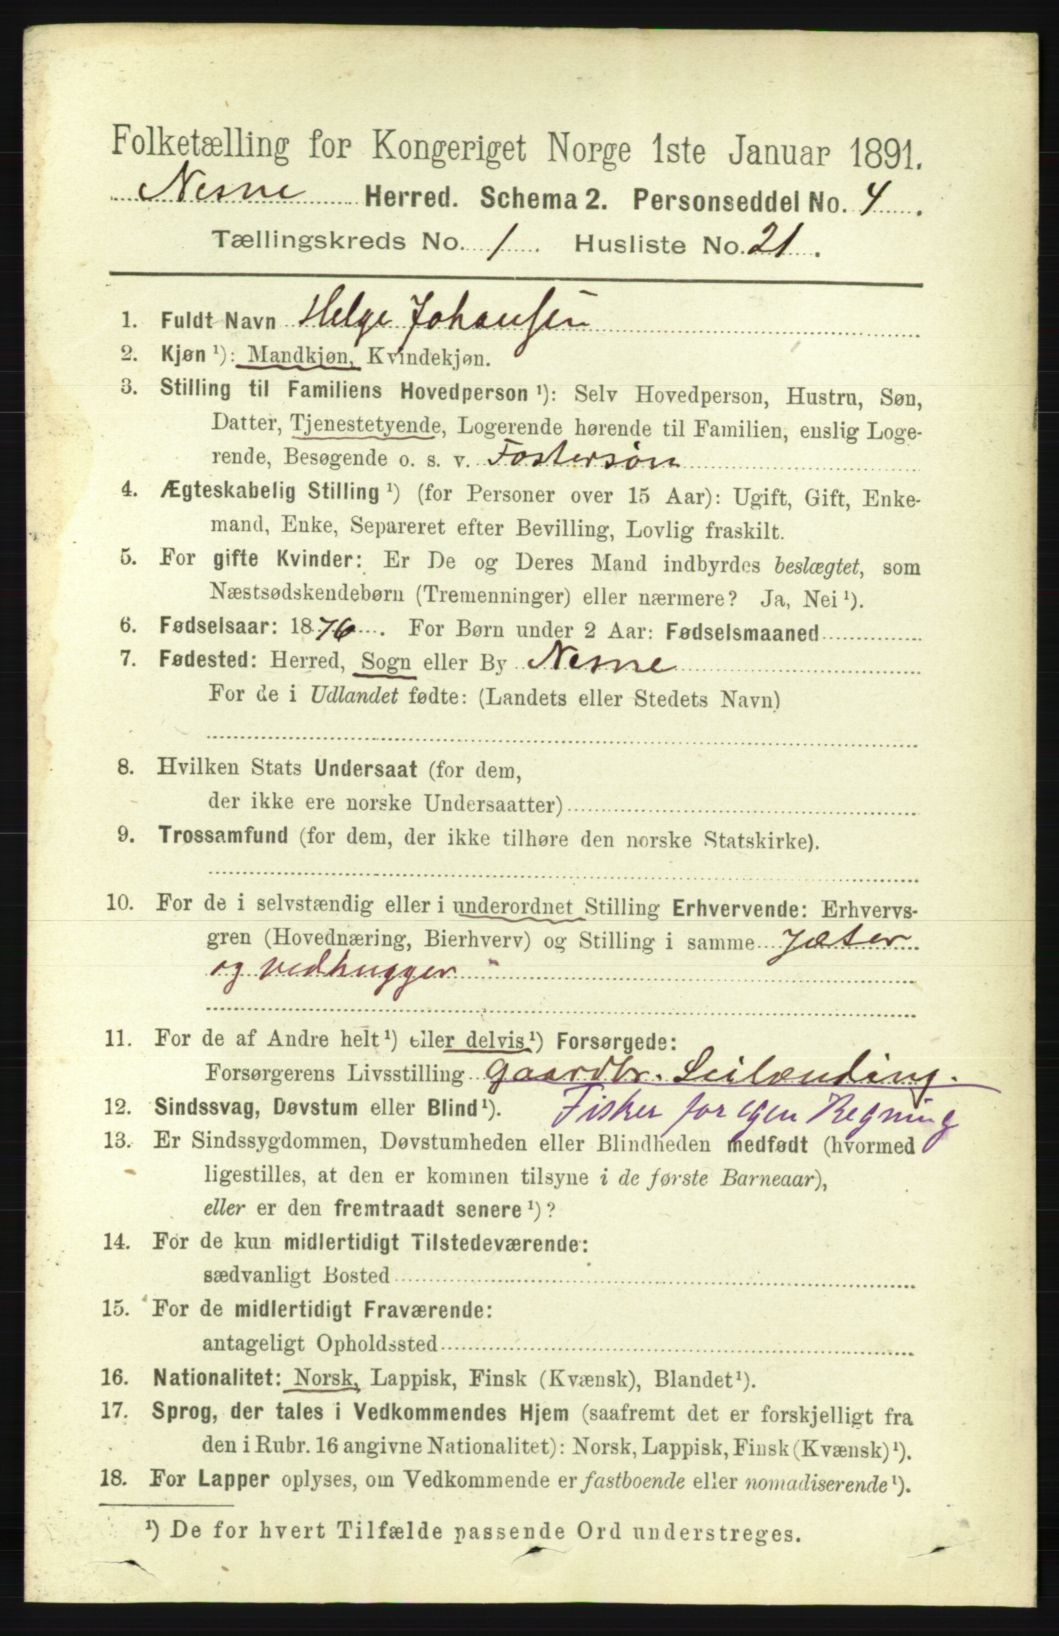 Folketælling for Kongeriget Norge 1ste Januar 1891.
Nesne Herred. Schema 2. Personseddel No. 4.
Tællingskreds No. 1. Husliste No. 21.
1. Fuldt Navn Helge Johansen
2. Kjøn ¹): Mandkjøn, Kvindekjøn.
3. Stilling til Familiens Hovedperson ¹): Selv Hovedperson, Hustru, Søn,
Datter, Tjenestetyende, Logerende hørende til Familien, enslig Loge-
rende, Besøgende o. s. v. Fostersøn
4. Ægteskabelig Stilling ¹) (for Personer over 15 Aar): Ugift, Gift, Enke-
mand, Enke, Separeret efter Bevilling, Lovlig fraskilt.
5. For gifte Kvinder: Er De og Deres Mand indbyrdes beslægtet, som
Næstsødskendebørn (Tremenninger) eller nærmere? Ja, Nei ¹).
6. Fødselsaar: 1876. For Børn under 2 Aar: Fødselsmaaned
7. Fødested: Herred, Sogn eller By Nesne
For de i Udlandet fødte: (Landets eller Stedets Navn)
8. Hvilken Stats Undersaat (for dem,
der ikke ere norske Undersaatter)
9. Trossamfund (for dem, der ikke tilhøre den norske Statskirke).
10. For de i selvstændig eller i underordnet Stilling Erhvervende: Erhvervs-
gren (Hovednæring, Bierhverv) og Stilling i samme Jæter
og vedhugger
11. For de af Andre helt ¹) eller delvis ¹) Forsørgede:
Forsørgerens Livsstilling Gaardbr. Leilænding.
12. Sindssvag, Døvstum eller Blind ¹). Fisker for egen Regning
13. Er Sindssygdommen, Døvstumheden eller Blindheden medfødt (hvormed
ligestilles, at den er kommen tilsyne i de første Barneaar),
eller er den fremtraadt senere ¹)?
14. For de kun midlertidigt Tilstedeværende:
sædvanligt Bosted
15. For de midlertidigt Fraværende:
antageligt Opholdssted
16. Nationalitet: Norsk, Lappisk, Finsk (Kvænsk), Blandet ¹).
17. Sprog, der tales i Vedkommendes Hjem (saafremt det er forskjelligt fra
den i Rubr. 16 angivne Nationalitet): Norsk, Lappisk, Finsk (Kvænsk) ¹).
18. For Lapper oplyses, om Vedkommende er fastboende eller nomadiserende ¹).
¹) De for hvert Tilfælde passende Ord understreges.